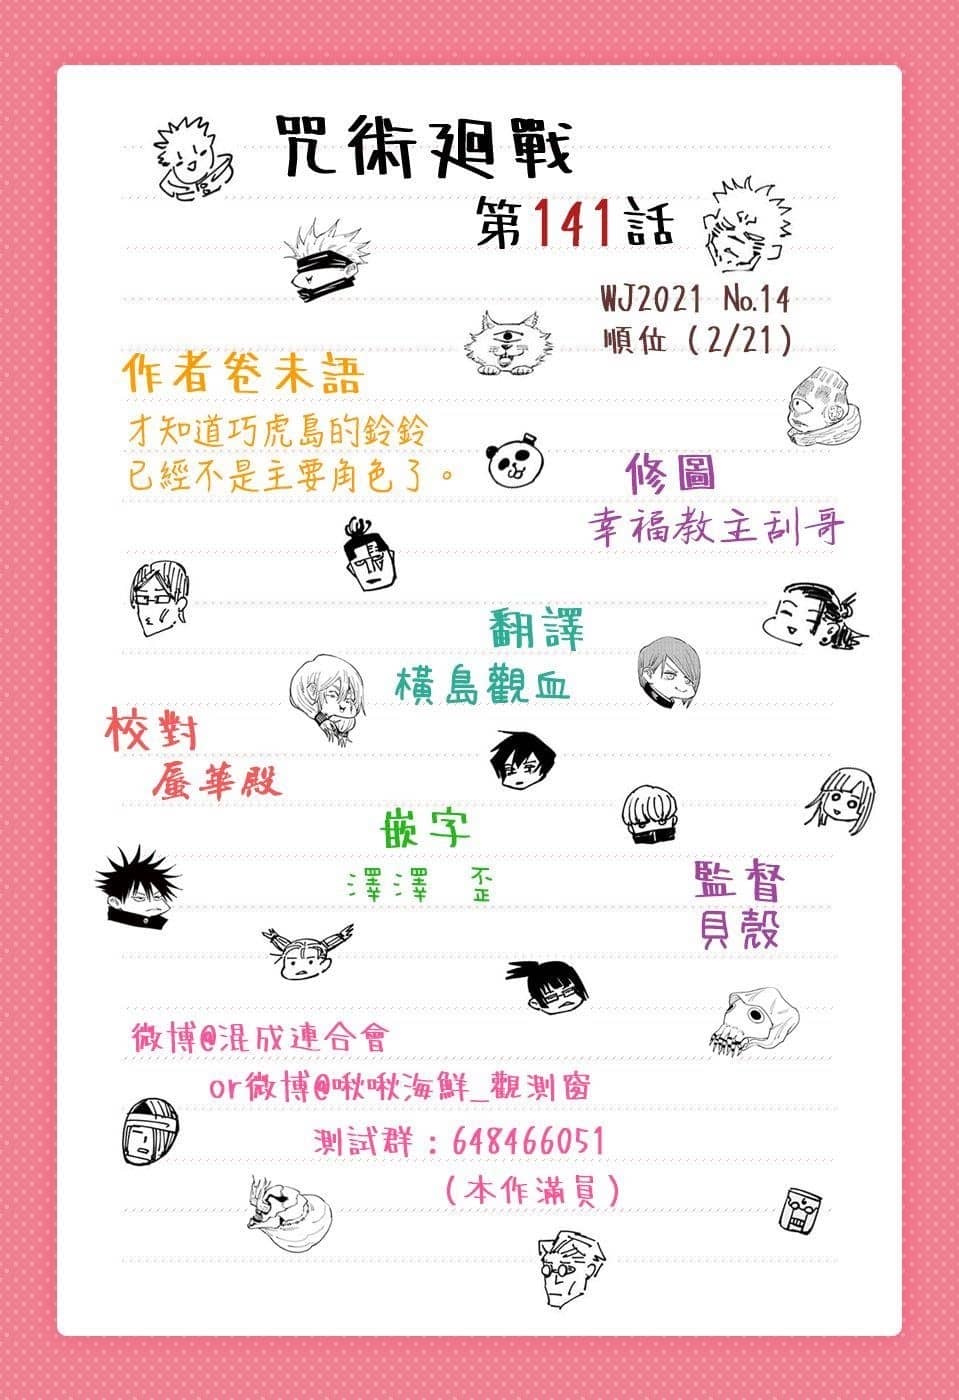 咒術廻戰
第141話
WJ2021 No.14
順位(2/21)
作者卷末語
才知道巧虎島的鈴鈴
已經不是主要角色了。
修圖
幸福教主刮哥
翻譯
橫島觀血
校對
蜃華殿
嵌字
澤澤 歪
監督
貝殼
微博@混成連合會
or微博@啾啾海鮮_觀測窗
測試群:648466051
(本作滿員)